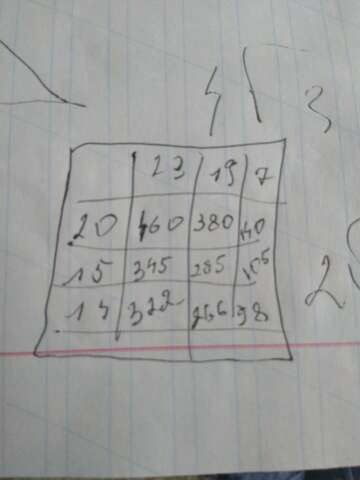 4 3
23 19 7
20 460 380 140
15 345 285 105
14 322 266 98
2